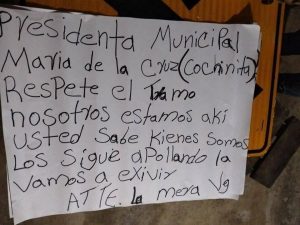 Presidenta Municipal
Maria de la Cruz (Cochinita)
Respete el tramo
nosotros estamos aki
usted sabe kienes somos
Los sigue apollando la
vamos a exivir
ATTE. la mera Vg